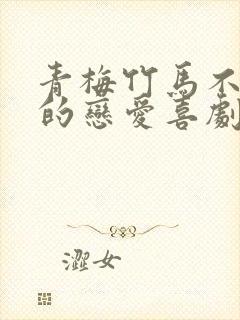 青梅竹馬不
的戀愛喜劇
澀女